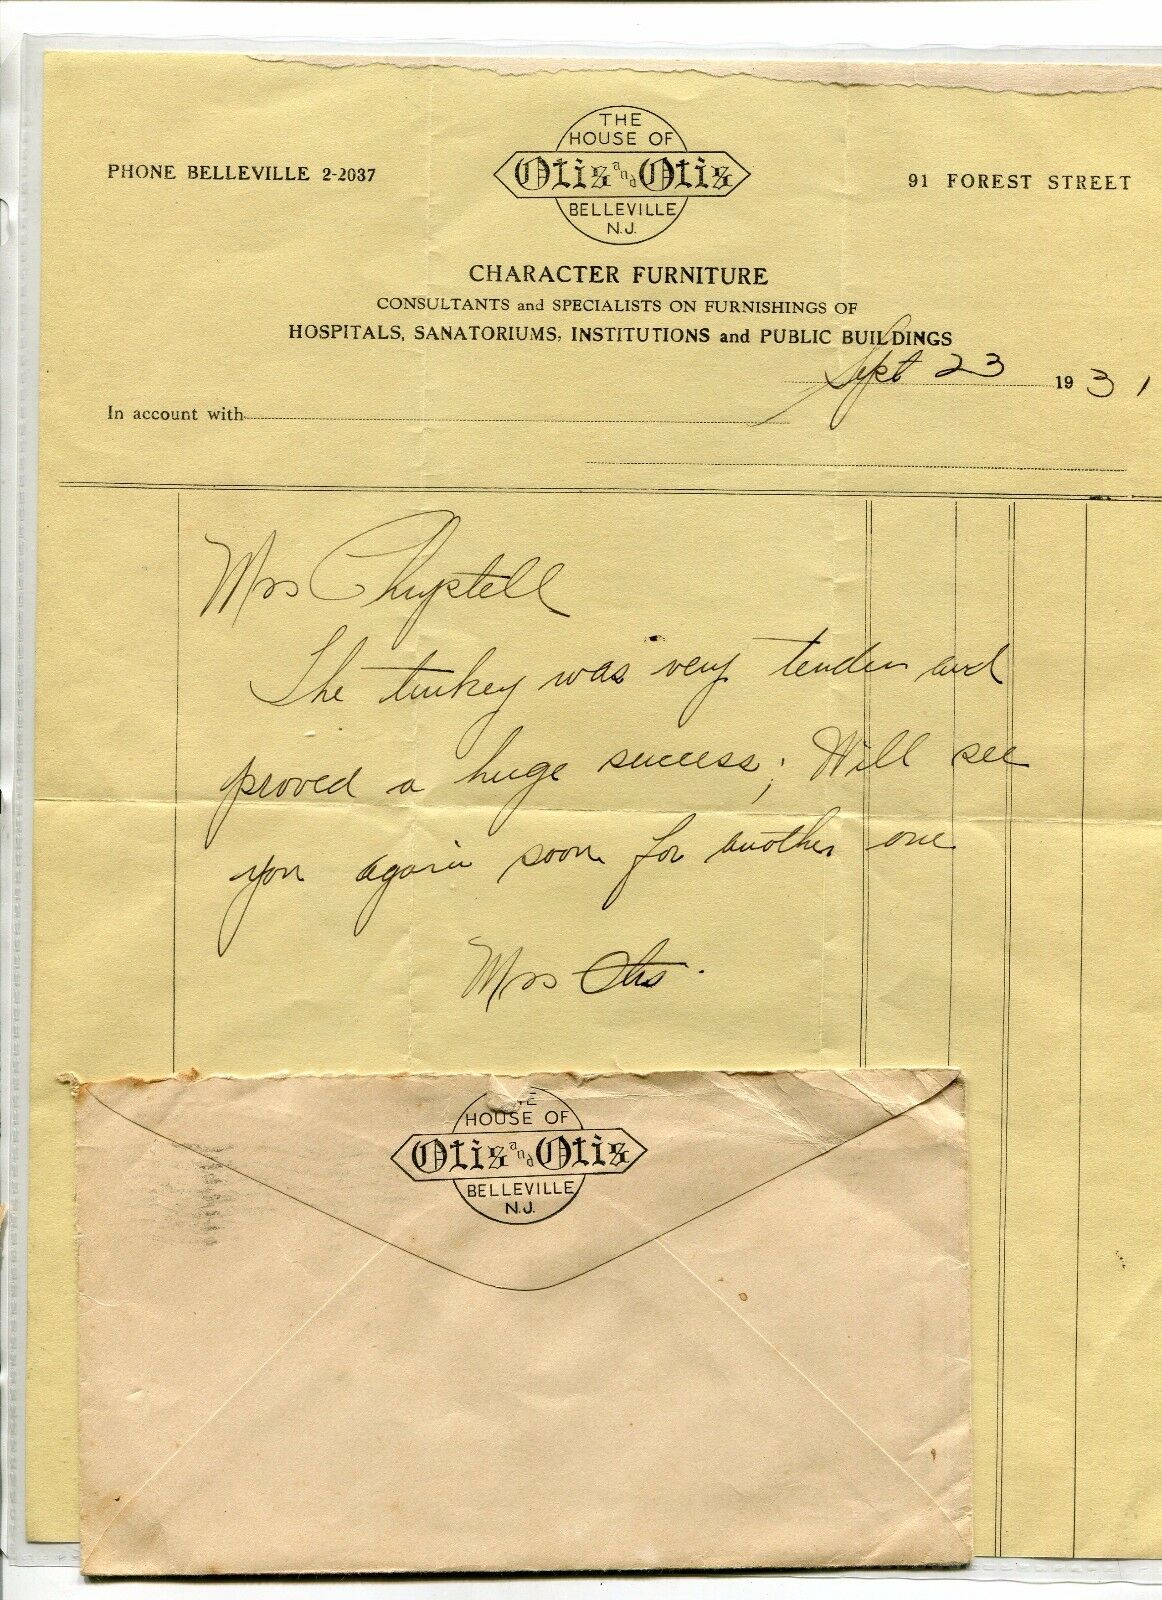 THE
HOUSE OF
Otis and Otis
BELLEVILLE
N.J.
PHONE BELLEVILLE 2-2037
91 FOREST STREET
CHARACTER FURNITURE
CONSULTANTS and SPECIALISTS ON FURNISHINGS OF
HOSPITALS, SANATORIUMS, INSTITUTIONS and PUBLIC BUILDINGS
Sept 23 1931
In account with
Mrs
The turkey was very tender and
proved a huge success; Will see
you again soon for another one
Mrs Otis.
HOUSE OF
Otis and Otis
BELLEVILLE
N.J.